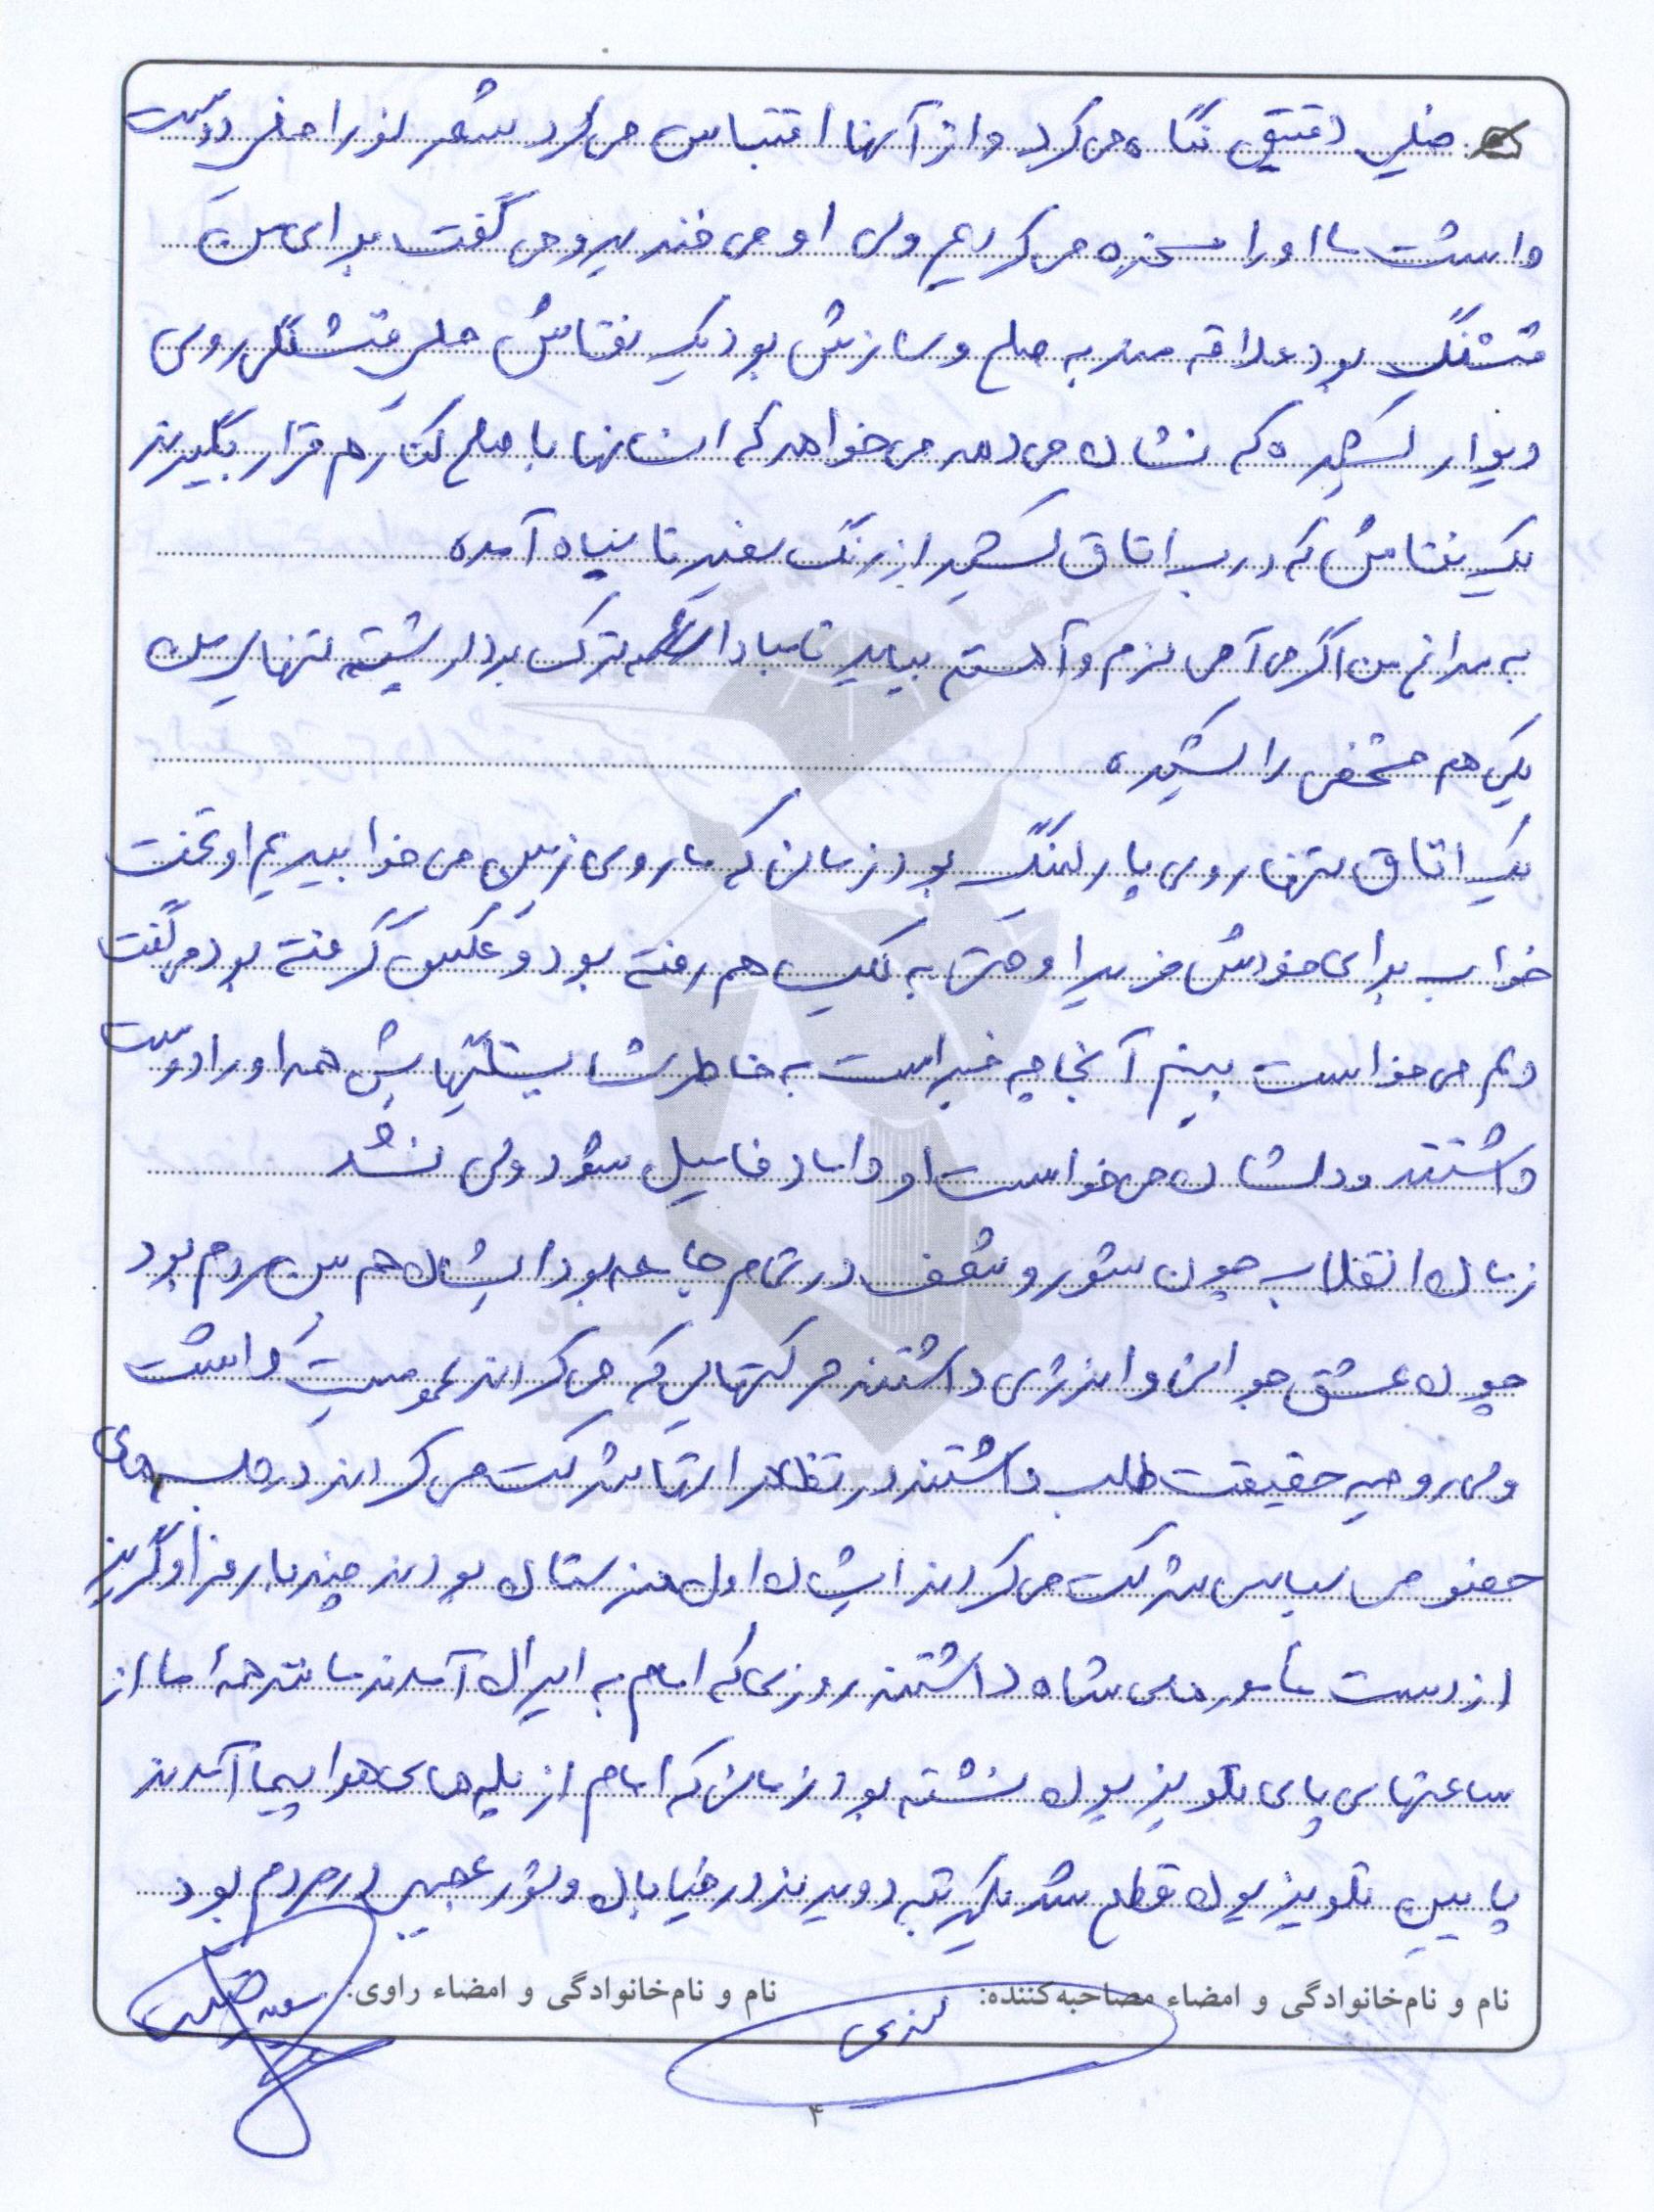 خیلی دقیق نگاه می کرد و از آنها اقتباس می کرد شعر نو را خیلی دوست
داشت ما او را مسخره می کردیم ولی او می خندید و می گفت برای من
قشنگ بود علاقه مند به صلح و سازش بود یک نقاشی خیلی قشنگی روی
دیوار کشیده که نشان می دهد می خواهد که انسانها با صلح کنار هم قرار بگیرند
یک نقاشی که درب اتاق کشید از رنگ سفید تا سیاه آمده
به سراغ من اگر می آمی نرم و آهسته بیایید تا مبادا که ترک بردارد شیشه تنهایی من
یکی هم شخصی را کشیده
یک اتاق تنها روی پارکینگ بود زمانی که ما روی زمین می خوابیدیم او تخت
خواب برای خودش خرید او حتی به هم رفته بود و عکس گرفته بود می گفت
دلم می خواست ببینم آنجا چه خبر است به خاطر شایستگیهایش همه او را دوست
داشتند و دلشان می خواست او داماد فامیل شود ولی نشد
زمان انقلاب چون شور و شعف در تمام جامعه بود ایشان هم بین مردم بود
چون عشق جوانی و انرژی داشتند حرکتهایی که می کردند عمومیت داشت
ولی روحیه حقیقت طلب داشتند در تظاهراتها شرکت می کردند در جلسه های
خصوصی سیاسی شرکت می کردند ایشان اول هنرستان بودند چند بار هم او گریز
از دست مأمورهای شاه داشتند روزی که امام به ایران آمدند مانند همه ما از
ساعتهای پای تلویزیون نشسته بود زمانی که امام از پله های هواپیما آمدند
پایین تلویزیون قطع شد یکمرتبه دویدند در خیابان و شور عجیبی در مردم بود
نام و نام‌خانوادگی و امضاء مصاحبه‌کننده:
نام و نام‌خانوادگی و امضاء راوی:
۴